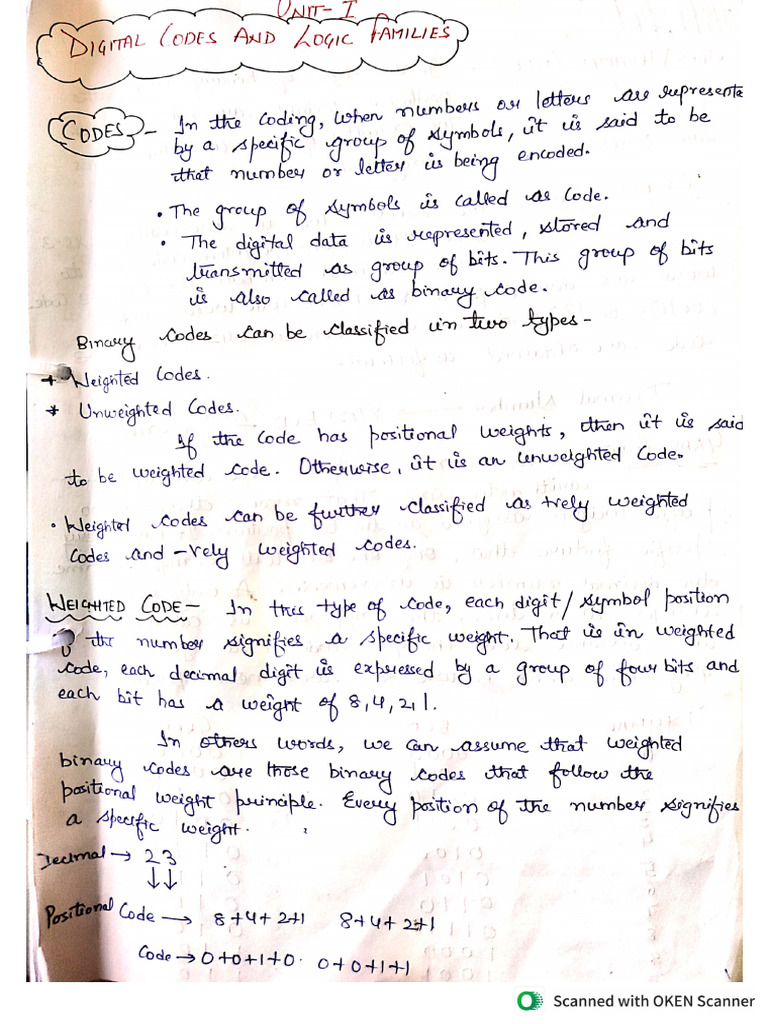 UNIT-I
DIGITAL CODES AND LOGIC FAMILIES
CODES - In the coding, when numbers or letters are represente
by a specific group of symbols, it is said to be
that number or letter is being encoded.
• The group of symbols is called as code.
• The digital data is represented, stored and
transmitted as group of bits. This group of bits
is also called as binary code.
Binary codes can be classified in two types -
* Weighted Codes.
* Unweighted Codes.
If the code has positional weights, then it is said
to be weighted code. Otherwise, it is an unweighted code.
• Weighted codes can be further classified as +vely weighted
codes and -vely weighted codes.
WEIGHTED CODE - In this type of code, each digit/symbol position
of the number signifies a specific weight. That is in weighted
code, each decimal digit is expressed by a group of four bits and
each bit has a weight of 8,4,2,1.
In others words, we can assume that weighted
binary codes are those binary codes that follow the
positional weight principle. Every position of the number signifies
a specific weight.
Decimal → 23
↓↓
Positional Code → 8+4+2+1 8+4+2+1
Code → 0+0+1+0. 0+0+1+1
Scanned with OKEN Scanner